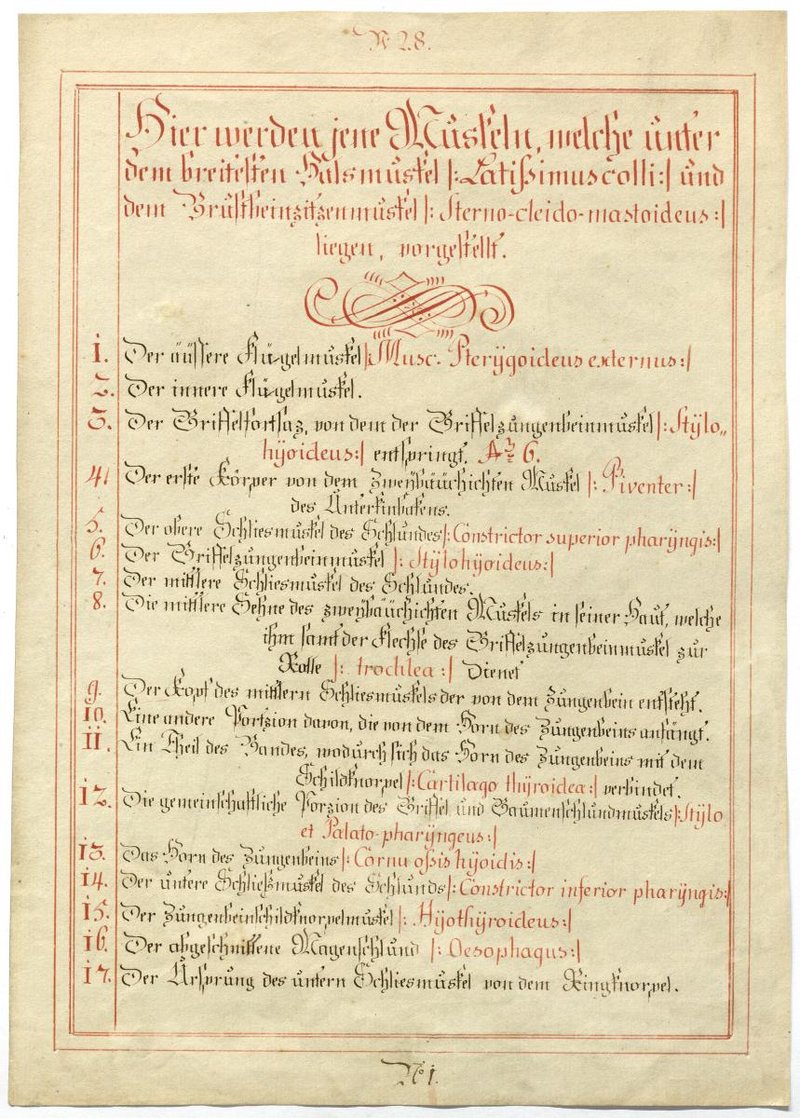 № 28.
Hier werden jene Muskeln, welche unter
dem breitesten Halsmuskel |: Latißimus colli :| und
dem Brustbeinzitzenmuskel |: Sterno-cleido-mastoideus :|
liegen, vorgestellt.
1. Der äüssere Flügelmuskel |: Musc. Pterÿgoideus externus :|
2. Der innere Flügelmuskel.
3. Der Griffelfortsaz, von dem der Griffelzungenbeinmuskel |: Stÿlo„
hÿoideus :| entspringt. 6.
4. Der erste Körper von dem zweÿbäüchichten Muskel |: Biventer :|
des Unterkinbakens.
5. Der obere Schliesmuskel des Schlundes |: Constrictor superior pharÿngis :|
6. Der Griffelzungenbeinmuskel |: Stÿlohÿoideus :|
7. Der mittlere Schliesmuskel des Schlundes.
8. Die mittlere Sehne des zweÿbäüchichten Muskels in seiner Haut, welche
ihm samt der Flechse des Griffelzungenbeinmuskel zur
Rolle |: trochlea :| Dienet
9. Der Kopf des mittlern Schliesmuskels der von dem Zungenbein entsteht.
10. Eine andere Portzion davon, die von dem Horn des Zungenbeins anfängt.
11. Ein Theil des Bandes, wodurch sich das Horn des Zungenbeins mit dem
Schildknorpel |: Cartilago thÿroidea :| verbindet.
12. Die gemeinschaftliche Porzion des Griffel und Gaumenschlundmuskels |: Stÿlo
et Palato-pharÿngeus :|
13. Das Horn des Zungenbeins |: Cornu oßis hÿoidis :|
14. Der untere Schließmuskel des Schlunds |: Constrictor inferior pharÿngis :|
15. Der Zungenbeinschildknorpelmuskel |: Hÿothÿroideus :|
16. Der abgeschnittene Magenschlund |: Oesophagus :|
17. Der Ursprung des untern Schliesmuskel von dem Ringknorpel.
№ 1.